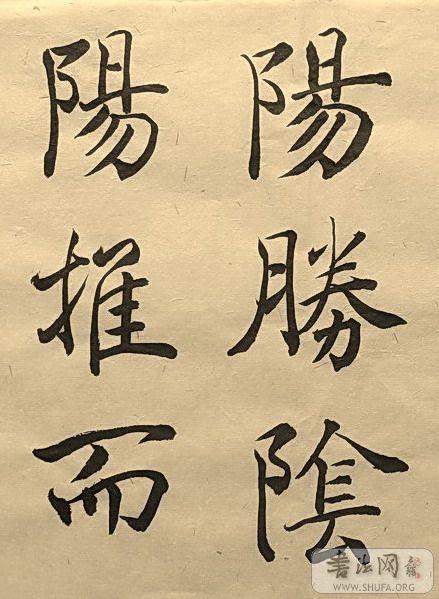 陽勝陰
陽推而
书法网
WWW.SHUFA.ORG